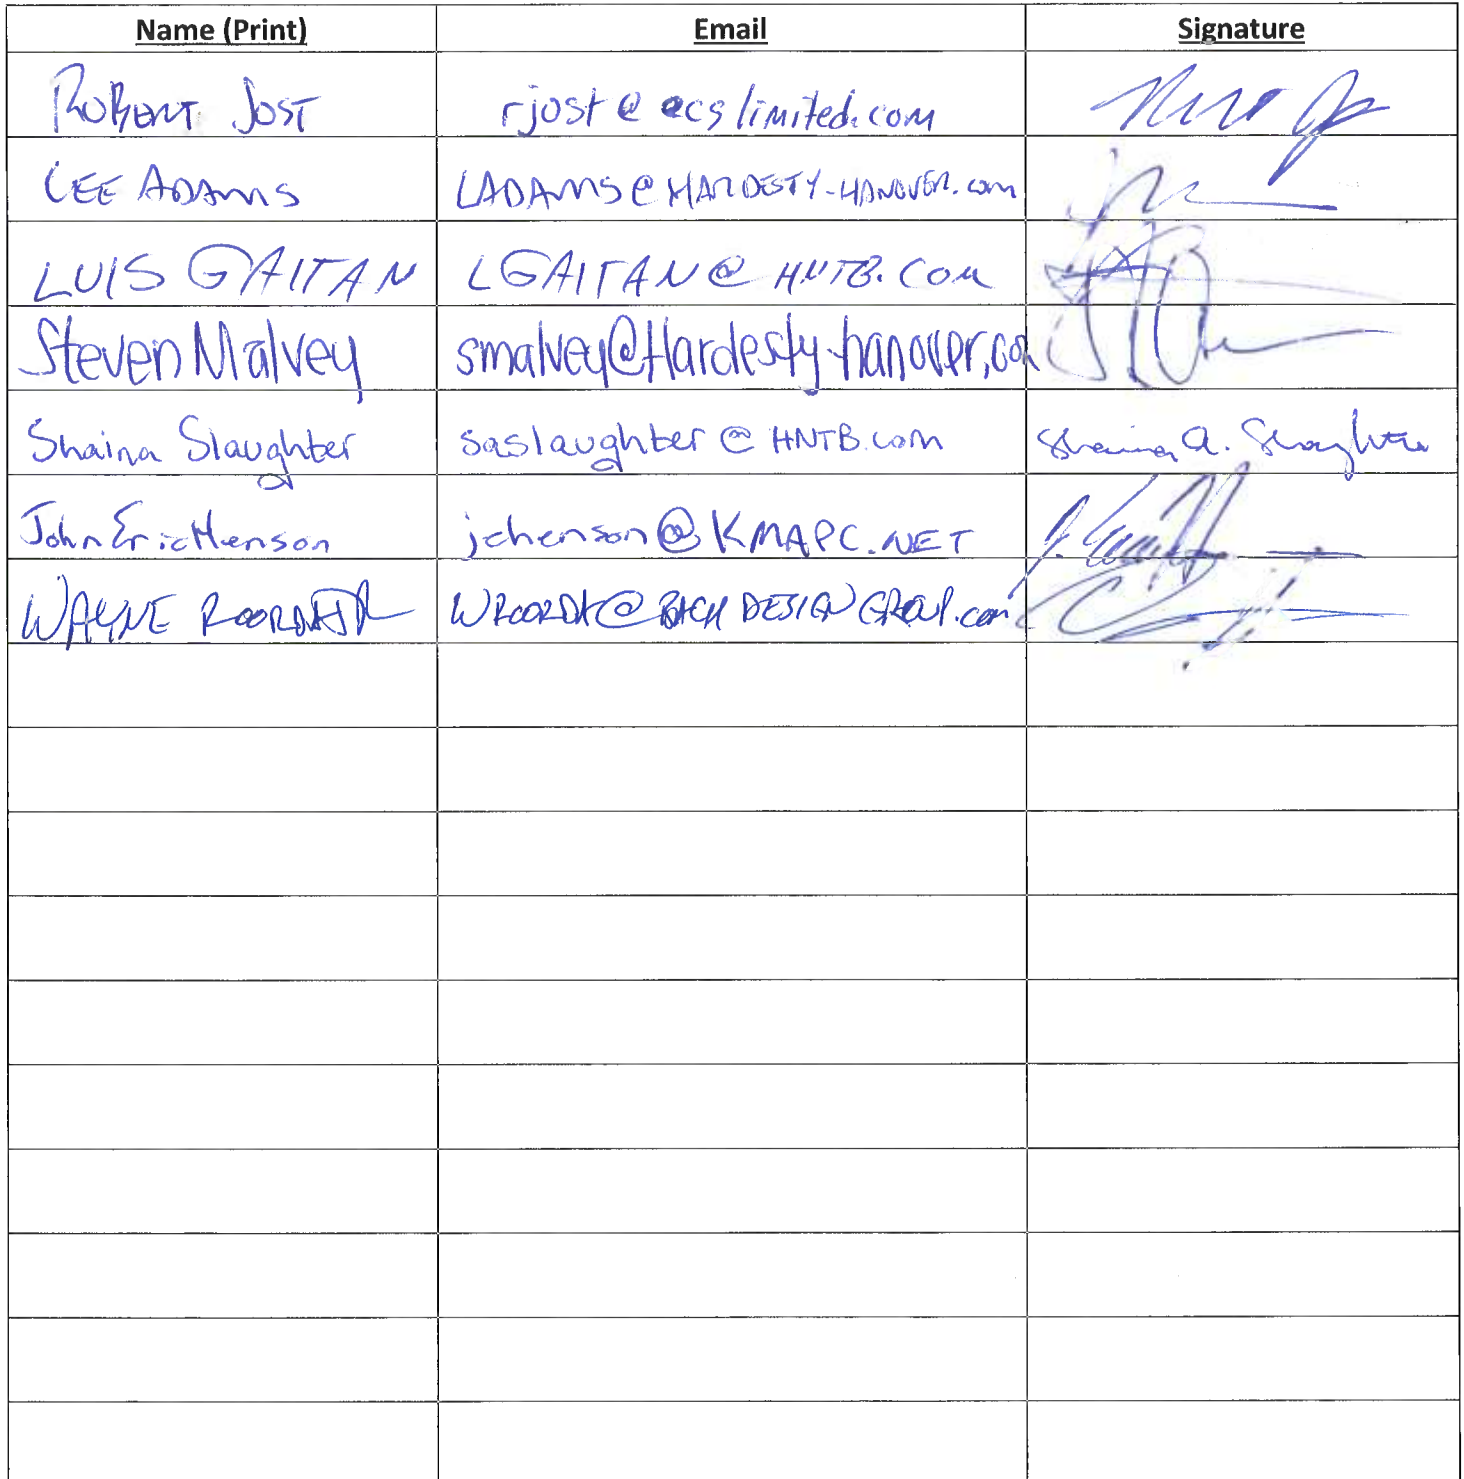 Name (Print) Email Signature
ROBERT JOST rjost@ecslimited.com
LEE ADAMS LADAMS@HARDESTY-HANOVER.com
LUIS GAITAN LGAITAN@HNTB.COM
Steven Malvey smalvey@Hardesty-hanover.com
Shaina Slaughter saslaughter@HNTB.com Shaina A. Slaughter
John Eric Henson jehenson@KMAPC.NET
WAYNE ROORDA JR WROORDA@BACH DESIGN GROUP.com